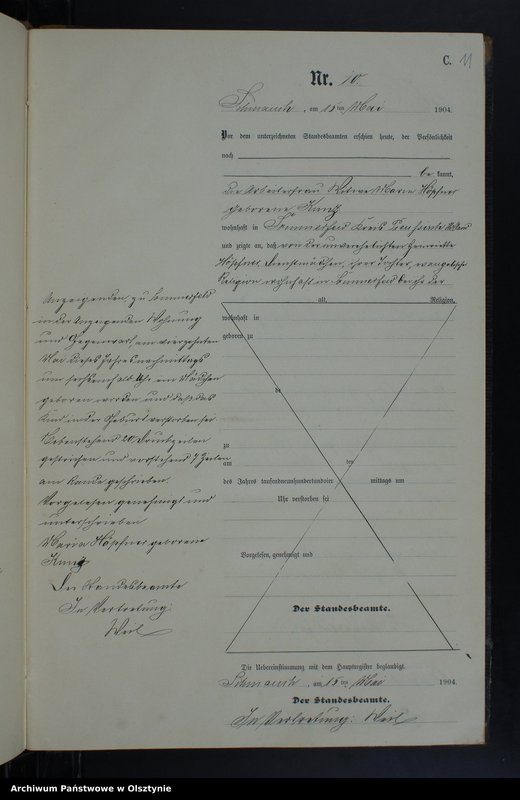 C. 11
Nr. 10.
Schmauch, am 15ten Mai 1904.
Vor dem unterzeichneten Standesbeamten erschien heute, der Persönlichkeit
nach
bekannt,
die Arbeiterfrau Witwe Maria Höpfner
geborene Kung
wohnhaft in Sommerfeld Kreis Pr. Holland
und zeigte an, daß von der unverehelichten Henriette
Höpfner, Dienstmädchen, ihrer Tochter, evangelischer
Religion wohnhaft in Sommerfeld bei der
alt, Religion,
wohnhaft in
geboren zu
Anzeigenden zu Sommerfeld
in der Anzeigenden Wohnung
und Gegenwart am vierzehnten
Mai dieses Jahres nachmittags
um Uhr ein Mädchen
geboren worden und daß das
Kind in der Geburt verstorben sei
Nebenstehend 20 Druckzeilen
gestrichen und vorstehend 7 Zeilen
am Rande geschrieben.
Vorgelesen, genehmigt und
unterschrieben
Maria Höpfner geborene
Kung
Der Standesbeamte
In Vertretung:
Weil
zu
am ten
des Jahres tausendneunhundertundvier mittags um
Uhr verstorben sei
Vorgelesen, genehmigt und
Der Standesbeamte.
Die Uebereinstimmung mit dem Hauptregister beglaubigt.
Schmauch, am 15ten Mai 1904.
Der Standesbeamte.
In Vertretung: Weil
Archiwum Państwowe w Olsztynie